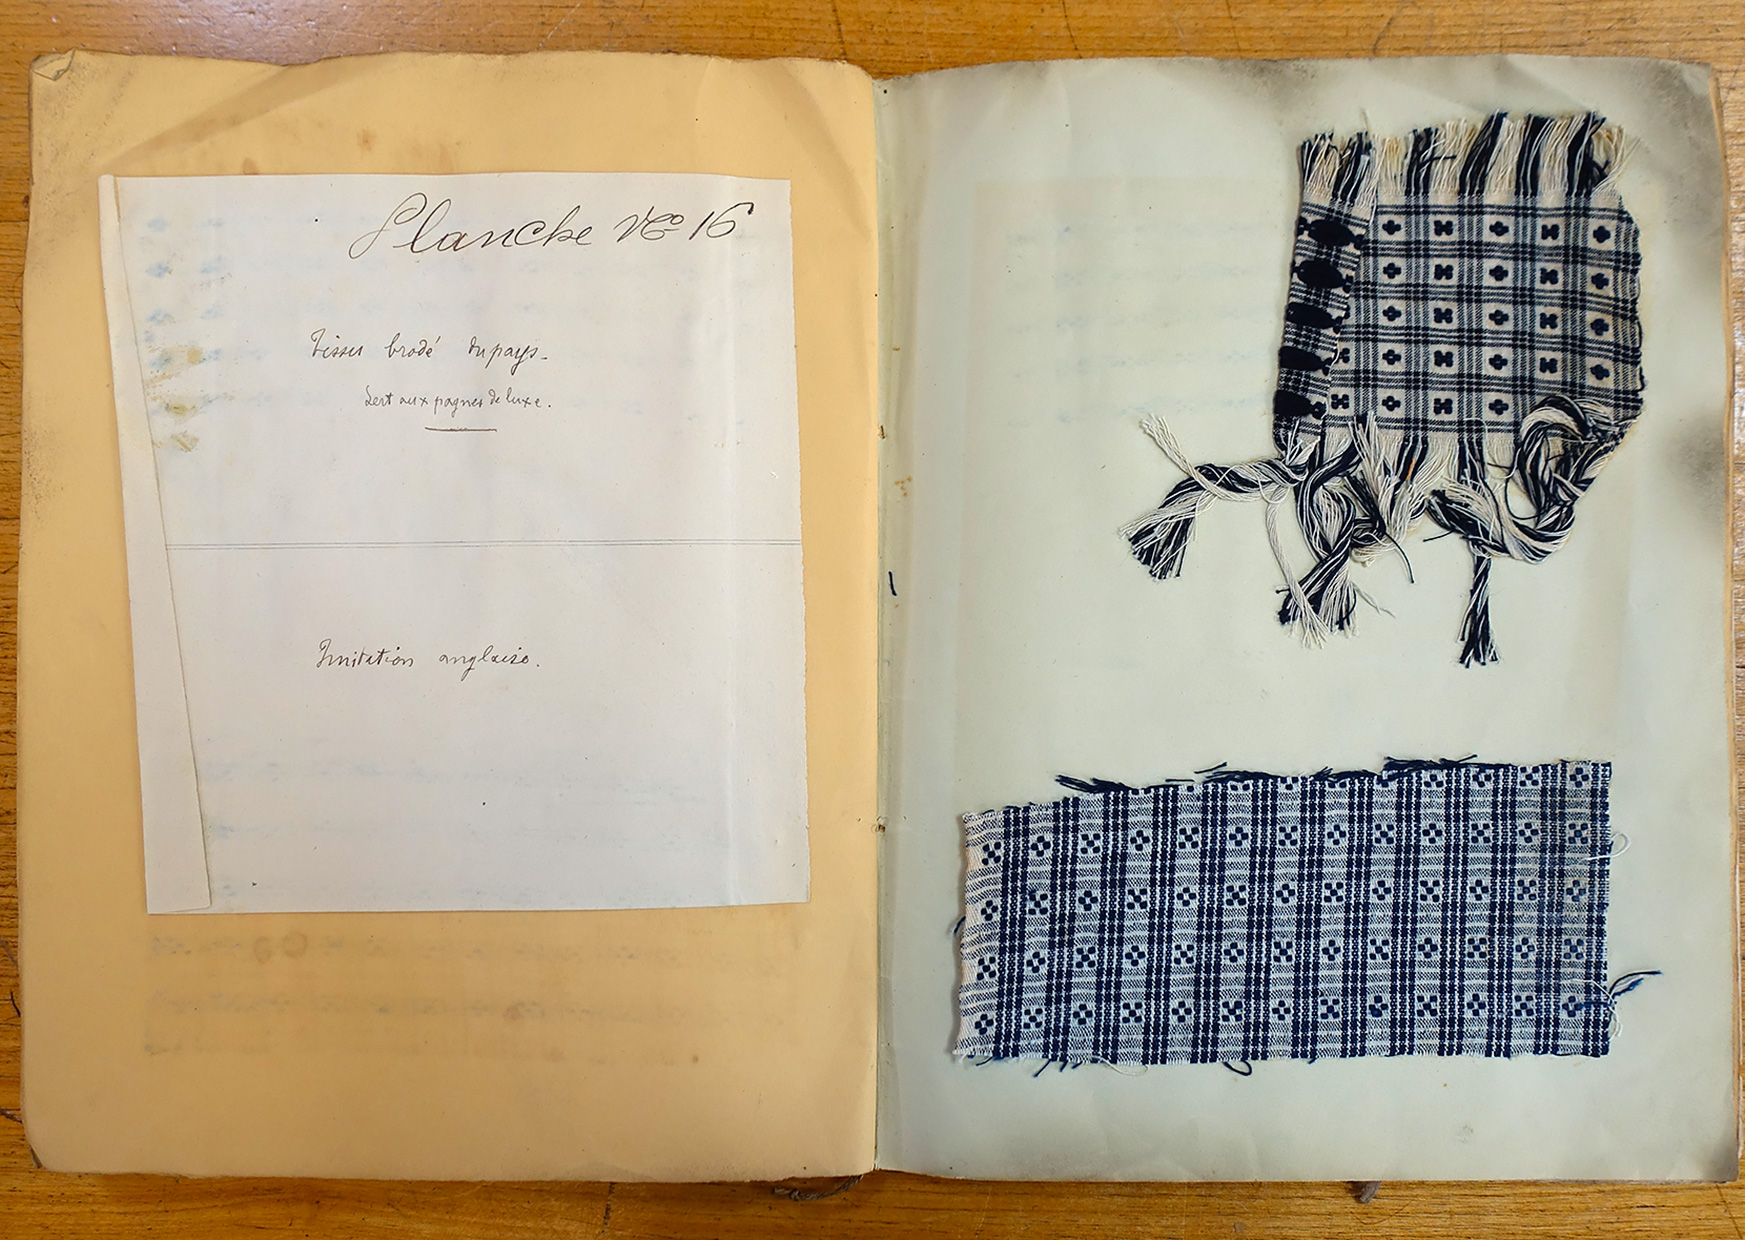 Planche No 16
Tissu brodé du pays -
Sert aux pagnes de luxe.
Imitation anglaise.